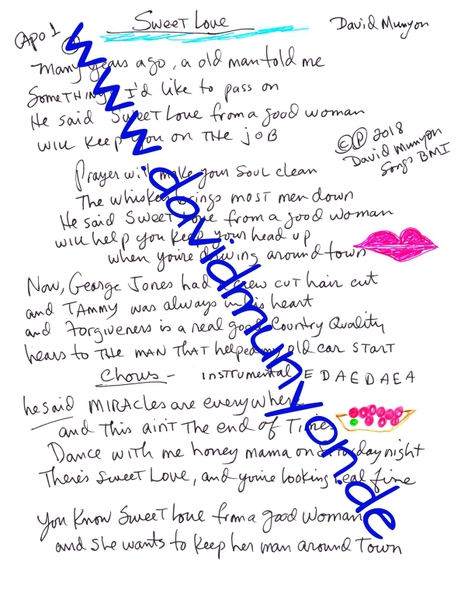 Sweet Love
David Munyon
Capo 1
Many years ago, a old man told me
Something I'd like to pass on
He said Sweet Love from a good woman
will keep you on the job
© ℗ 2018
David Munyon
Songs BMI
Prayer will make your soul clean
The whiskey brings most men down
He said Sweet Love from a good woman
will help you keep your head up
when you're driving around town
Now, George Jones had crew cut hair cut
and Tammy was always in his heart
and Forgiveness is a real good Country Quality
hears to the man that helped my old car start
Chorus - instrumental E D A E D A E A
he said MIRAcles are everywhere
and this ain't the end of Time
Dance with me honey mama on Saturday night
There's Sweet Love, and you're looking real fine
You Know Sweet Love from a good Woman
and she wants to keep her man around Town
www.davidmunyon.de